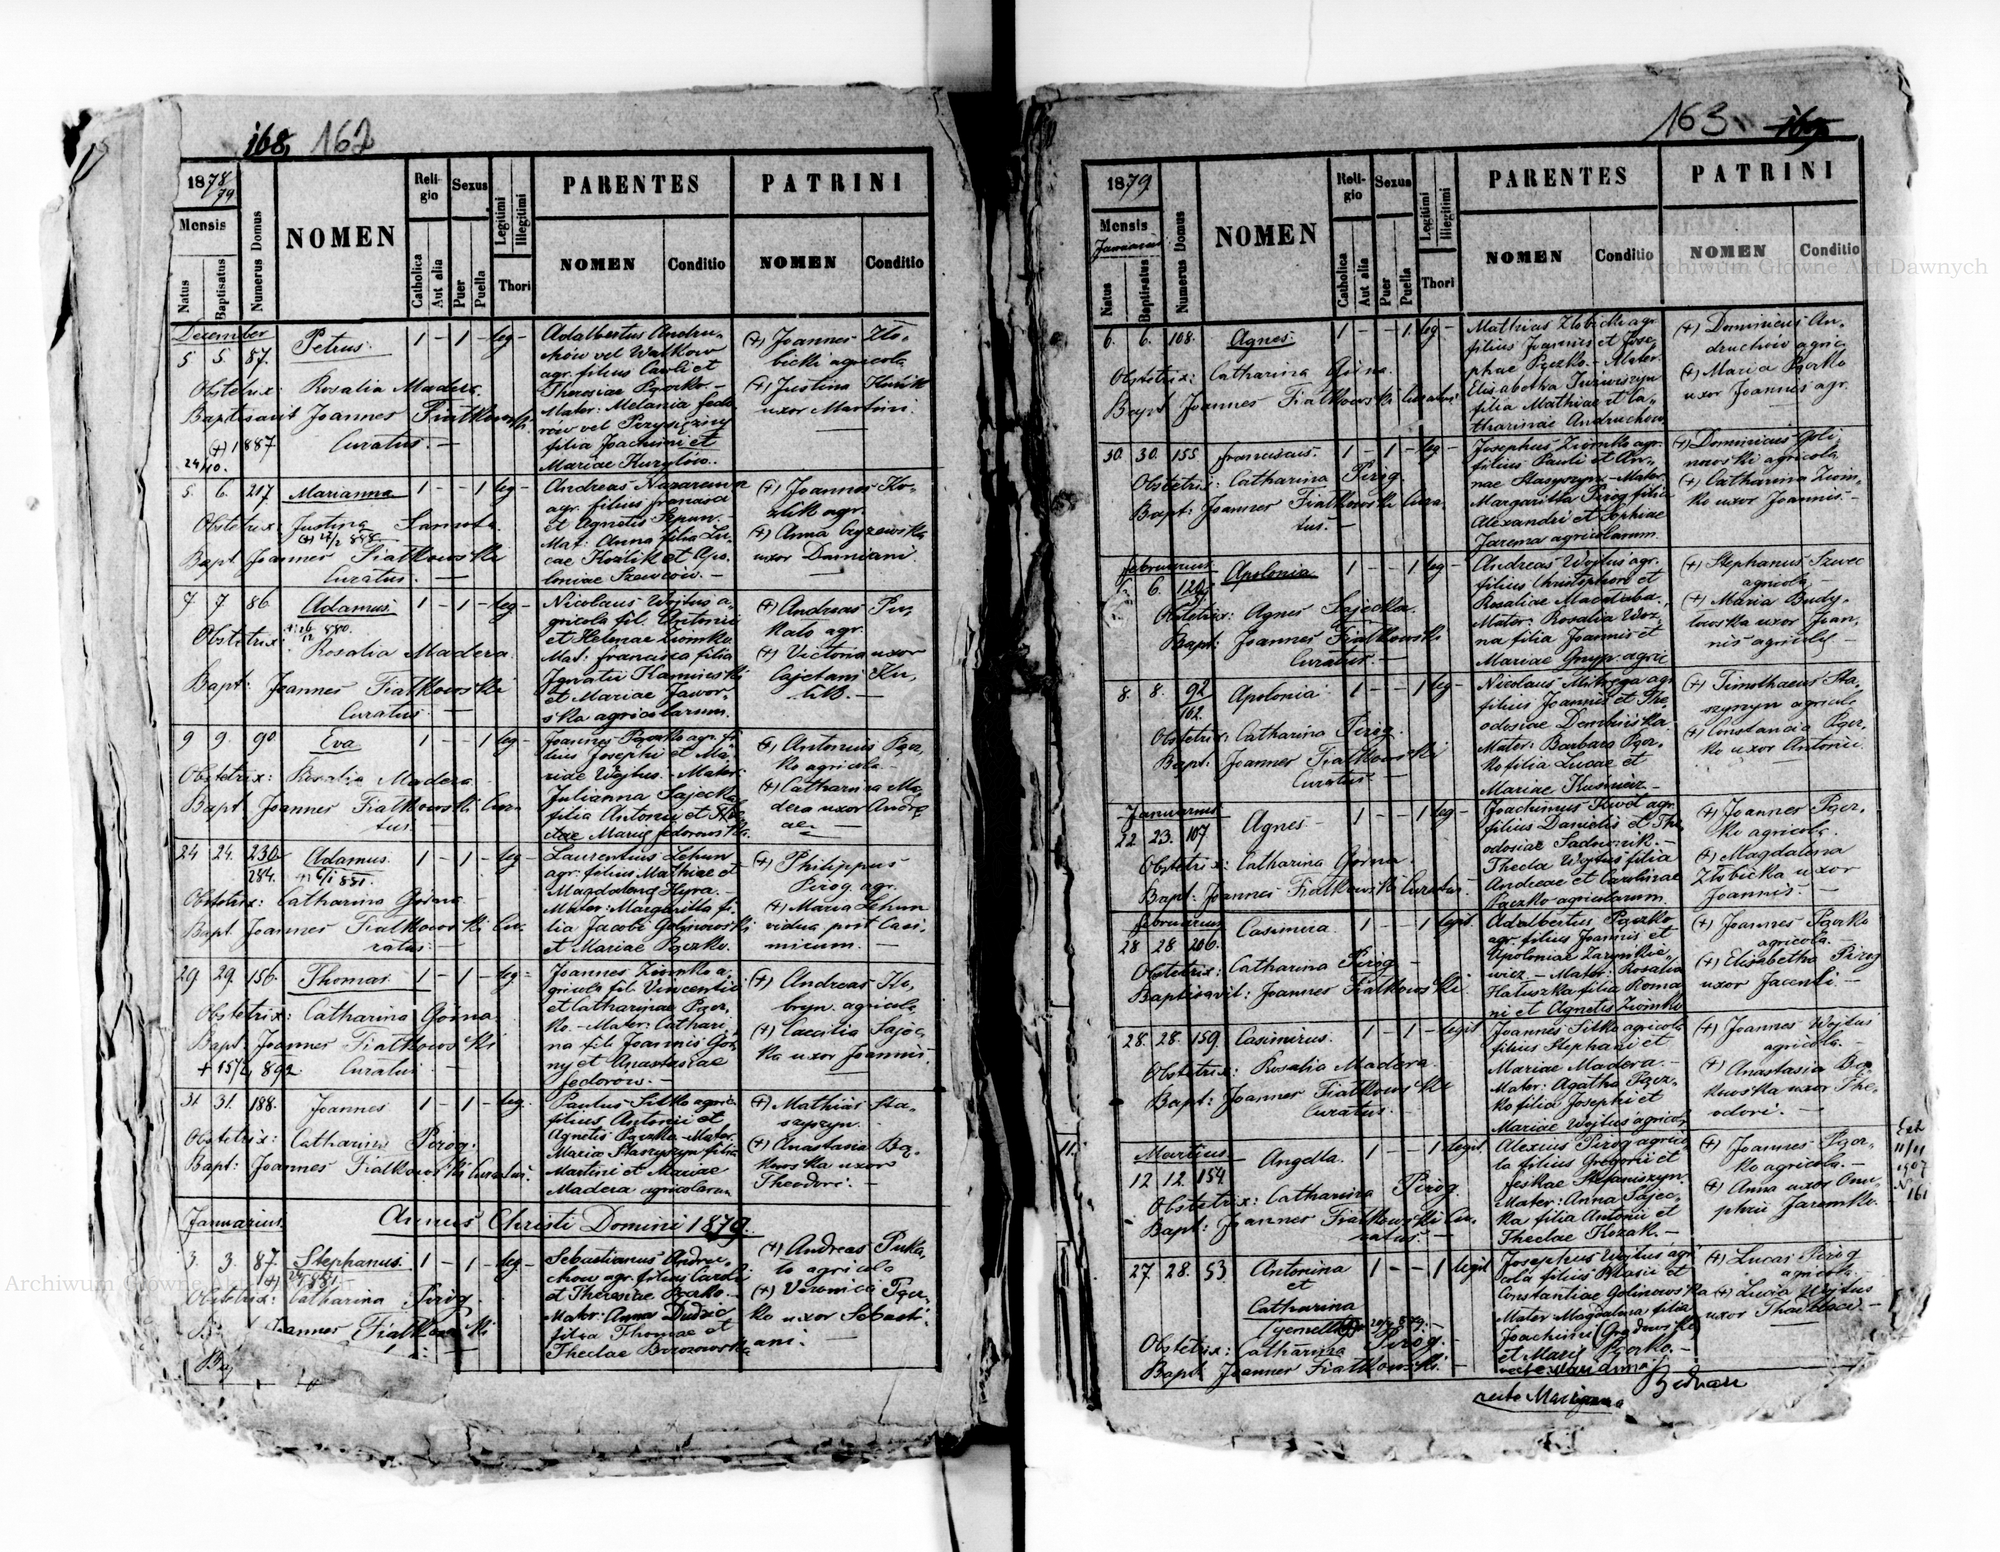 168, 162
1878/79
Mensis
Natus
Baptisatus
Numerus Domus
NOMEN
Religio
Catholica
Aut alia
Sexus
Puer
Puella
Legitimi
Illegitimi
Thori
PARENTES
NOMEN
Conditio
PATRINI
NOMEN
Conditio
December
5 5. 87. Petrus. 1 - 1 - leg -
Obstetrix: Rosalia Madera.
Baptisavit Joannes Fiatkowski
(+) 1887 Curatus. —
24/10.
Adalbertus Andru-
chow vel Watkow
agr. filius Caroli et
Theresiae Pączko. —
Mater: Melania Fedo
row vel Przysiężny
filia Joachimi et
Mariae Kurytów.
(+) Joannes Zło-
bicki agricola
(+) Justina Koźlik
uxor Martini.
5. 6. 217 Marianna 1 - - 1 leg -
Obstetrix: Justina Sannota.
Bapt. Joannes Fiatkowski
Curatus. —
Andreas Nazarewicz
agr. filius Francisci
et Agnetis Szpun. —
Mat: Anna filia Lu-
cae Kozlik et Apo-
loniae Szewców. —
(+) Joannes Ko-
zlik agr.
(+) Anna Cryzewska
uxor Damiani
7 7 86 Adamus. 1 - 1 - leg -
Obstetrix: Rosalia Madera.
Bapt: Joannes Fiatkowski
Curatus. —
Nicolaus Wojtus a-
gricola fil. Antonii
et Helenae Ziomko.
Mat: Francisca filia
Ignatii Kaminski
et Mariae Jawor-
ska agricolarum.
(+) Andreas Pu-
kalo agr.
(+) Victoria uxor
Cajetani Ku-
lik. —
9 9. 90 Eva 1 - - 1 leg -
Obstetrix: Rosalia Madera.
Bapt. Joannes Fiatkowski Cura
tus.
Joannes Pączko agr. fi
lius Josephi et Ma-
riae Wojtus. - Mater:
Julianna Sajecka
filia Antonii et The
clae Marie Fedorowska.
(+) Antonius Pącz-
ko agricola —
(+) Catharina Ma-
dera uxor Andre
ae. —
24 24. 230 Adamus. 1 - 1 - leg -
284. + 6/1 881.
Obstetrix: Catharina Górna —
Bapt. Joannes Fiatkowski Cu-
ratus. —
Laurentius Lehun
agr. filius Mathiae et
Magdalena Hyra. —
Mater: Margaritta fi-
lia Jacobi Golinowski
et Mariae Pączko.
(+) Philippus
Pirog agr.
(+) Maria Lehun
vidua post Casi-
mirum. —
29 29. 156 Thomas. 1 - 1 - leg -
Obstetrix: Catharina Górna.
Bapt. Joannes Fiatkowski
+ 15/2 892 Curatus —
Joannes Ziomko a-
gricola fil. Vincentii
et Catharinae Pącz-
ko. - Mater: Cathari-
na fili Joannis Gór-
ny et Anastasiae
Fedorow. —
(+) Andreas Ko-
bryn. agricola
(+) Caecilia Sajec-
ka uxor Joannis.
31. 31. 188. Joannes 1 - 1 - leg.
Obstetrix: Catharina Pirog.
Bapt: Joannes Fiatkowski Curatus.
Paulus Sitko agric.
filius Antonii et
Agnetis Pączko - Mater.
Maria Staszyszyn filia
Martini et Mariae
Madera agricolarum
(+) Mathias Sta-
szyszyn.
(+) Anastasia Bą-
kowska uxor
Theodori. —
Januarius. Annus Christi Domini 1879.
3. 3. 87. Stephanus. 1 - 1 - leg -
Obstetrix: Catharina Pirog.
Joannes Fiatkowski
Sebastianus Andru-
chow agr. filius Caroli
et Theresiae Pączko. —
Mater: Anna Dudzic
filia Thomae et
Theclae Brzozowska
(+) Andreas Puka-
lo agricola
(+) Veronica Pącz-
ko uxor Sebasti-
ani. —
163
1879
Mensis
Januarius
Natus
Baptisatus
Numerus Domus
NOMEN
Religio
Catholica
Aut alia
Sexus
Puer
Puella
Legitimi
Illegitimi
Thori
PARENTES
NOMEN
Conditio
PATRINI
NOMEN
Conditio
6. 6. 108. Agnes. 1 - - 1. leg -
Obstetrix: Catharina Górna.
Bapt Joannes Fiatkowski Curatus
Mathias Złobicki agr.
filius Joannis et Jose-
phae Pączko. - Mater.
Elisabetha Jurwiszyn
filia Mathiae et Ca-
tharinae Andruchow
(+) Dominicus An-
druchow agric.
(+) Maria Pączko
uxor Joannis agr.
30. 30. 155 Franciscus. 1 - 1 - leg -
Obstetrix: Catharina Pirog
Bapt: Joannes Fiatkowski Cura-
tus. —
Josephus Ziomko agr.
filius Pauli et An-
nae Stasyszyn - Mater:
Margaritta Pirog filia
Alexandri et Sophiae
Jarema agricolarum.
(+) Dominicus Goli-
nowski agricola
(+) Catharina Ziom-
ko uxor Joannis. —
Februarius
6. 120 Apolonia. 1 - - 1 leg -
Obstetrix: Agnes Sajecka.
Bapt: Joannes Fiatkowski
Curatus. —
Andreas Wojtus agr.
filius Christophori et
Rosaliae Macałaba.
Mater: Rosalia Woz-
na filia Joannis et
Mariae Gnyp. agric
(+) Stephanus Szwec
agricola. —
(+) Maria Budy-
lowska uxor Joan-
nis agricolae —
8. 8. 92/162. Apolonia 1 - - 1 leg -
Obstetrix: Catharina Pirog.
Bapt: Joannes Fiatkowski
Curatus —
Nicolaus Mitręga agr
filius Joannis et The
odosiae Dembinska.
Mater: Barbara Pącz-
ko filia Lucae et
Mariae Kusnierz —
(+) Timothaeus Sta-
szyszyn agricola
(+) Constancia Pącz-
ko uxor Antonii.
Januarius
22 23. 107. Agnes - 1 - - 1 leg -
Obstetrix: Catharina Górna.
Bapt: Joannes Fiatkowski Curatus. —
Joachimus Kiwel agr.
filius Danielis et The
odosiae Sadownik. —
Thecla Wojtus filia
Andreae et Carolinae
Pączko agricolarum.
(+) Joannes Pącz-
ko agricola.
(+) Magdalena
Złobicka uxor
Joannis. —
Februarius
28 28 206. Casimira. 1 - - 1 legit.
Obstetrix: Catharina Pirog —
Baptisavit: Joannes Fiatkowski.
Adalbertus Pączko
agr. filius Joannis et
Apoloniae Zarynkie-
wicz. - Mater: Rosalia
Hałuszka filia Roma
ni et Agnetis Ziomko
(+) Joannes Pączko
agricola. —
(+) Elisabetha Pirog
uxor Jacenti. —
28. 28. 159 Casimirus. 1 - 1 - legit.
Obstetrix: Rosalia Madera.
Bapt: Joannes Fiatkowski
Curatus. —
Joannes Sitko agricola
filius Stephani et
Mariae Madera. —
Mater: Agatha Pącz-
ko filia Josephi et
Mariae Wojtus agricol.
(+) Joannes Wojtus
agricola. —
(+) Anastasia Bą-
kowska uxor The-
odori. —
11.
Martius
12 12. 154 Angella. 1 - - 1 legit.
Obstetrix: Catharina Pirog.
Bapt: Joannes Fiatkowski Cu-
ratus. —
Alexius Pirog agrico
la filius Gregorii et
Feskae Stefaniszyn.
Mater: Anna Sajec-
ka filia Antonii et
Theclae Kozak. —
(+) Joannes Pącz-
ko agricola. —
(+) Anna uxor Onu-
phrii Jaremko.
Ext
11/11
1907
N 161
27 28. 53. Antonina 1 - - 1 legit
et
Catharina
(gemellae)
Obstetrix: Catharina Pirog. —
Bapt. Joannes Fiatkowski. —
Josephus Wojtus agri
cola filius Blasii et
Constantiae Golinowska
Mater Magdalena filia
Joachimi (Grodowski)
et Marie Pączko. —
recte Marianna
(+) Lucas Pirog
agricola. —
(+) Lucia Wojtus
uxor Thadaei. —
Archiwum Główne Akt Dawnych
Archiwum Główne Akt